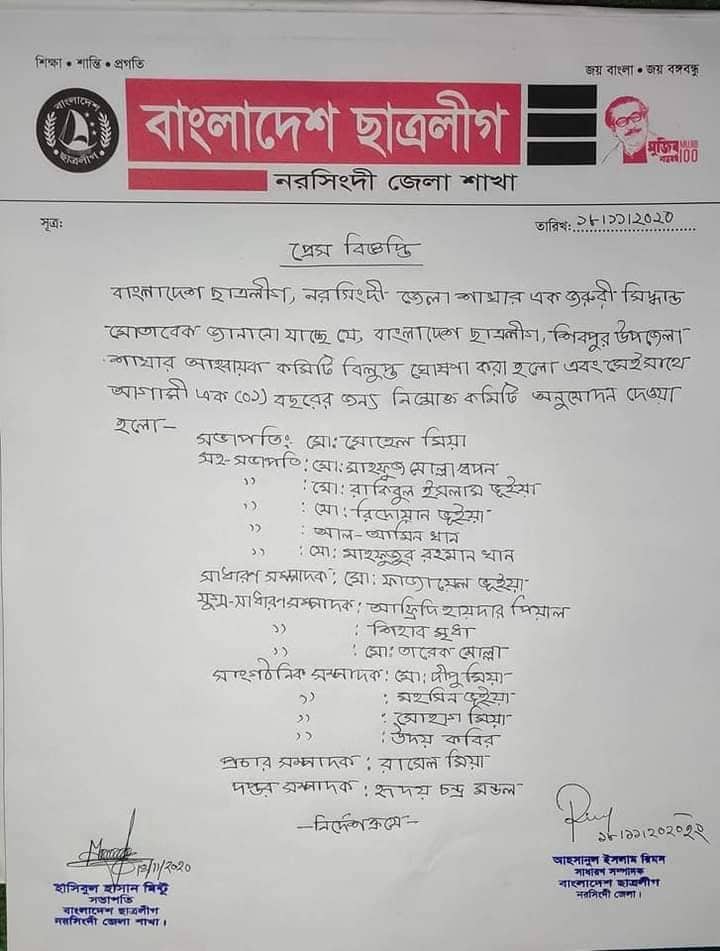 শিক্ষা • শান্তি • প্রগতি
জয় বাংলা • জয় বঙ্গবন্ধু
বাংলাদেশ
ছাত্রলীগ
বাংলাদেশ ছাত্রলীগ
মুজিব 100
নরসিংদী জেলা শাখা
সূত্র:
তারিখ: ১৮।১১।২০২০
প্রেস বিজ্ঞপ্তি
বাংলাদেশ ছাত্রলীগ, নরসিংদী জেলা শাখার এক জরুরী সিদ্ধান্ত
মোতাবেক জানানো যাচ্ছে যে, বাংলাদেশ ছাত্রলীগ, শিবপুর উপজেলা
শাখার আহ্বায়ক কমিটি বিলুপ্ত ঘোষণা করা হলো এবং সেই সাথে
আগামী এক (০১) বছরের জন্য নিম্নোক্ত কমিটি অনুমোদন দেওয়া
হলো—
সভাপতি: মো: সোহেল মিয়া
সহ-সভাপতি: মো: মাহফুজ মোল্লা স্বপন
,, : মো: রাকিবুল ইসলাম ভূইয়া
,, : মো: রিদোয়ান ভূইয়া
,, : আল-আমিন খান
,, : মো: মাহফুজুর রহমান খান
সাধারণ সম্পাদক: মো: ফাজায়েল ভূইয়া
যুগ্ম-সাধারণ সম্পাদক: আফ্রিদি হায়দার পিয়াল
,, : শিহাব মৃধা
,, : মো: তারেক মোল্লা
সাংগঠনিক সম্পাদক: মো: দীপু মিয়া
,, : মহসিন ভূইয়া
,, : সোহাগ মিয়া
,, : উদয় কবির
প্রচার সম্পাদক: রাসেল মিয়া
দপ্তর সম্পাদক: হৃদয় চন্দ্র মন্ডল
—নির্দেশক্রমে—
18/11/2020
হাসিবুল হাসান মিন্টু
সভাপতি
বাংলাদেশ ছাত্রলীগ
নরসিংদী জেলা শাখা।
আহসানুল ইসলাম রিমন
সাধারণ সম্পাদক
বাংলাদেশ ছাত্রলীগ
নরসিংদী জেলা।